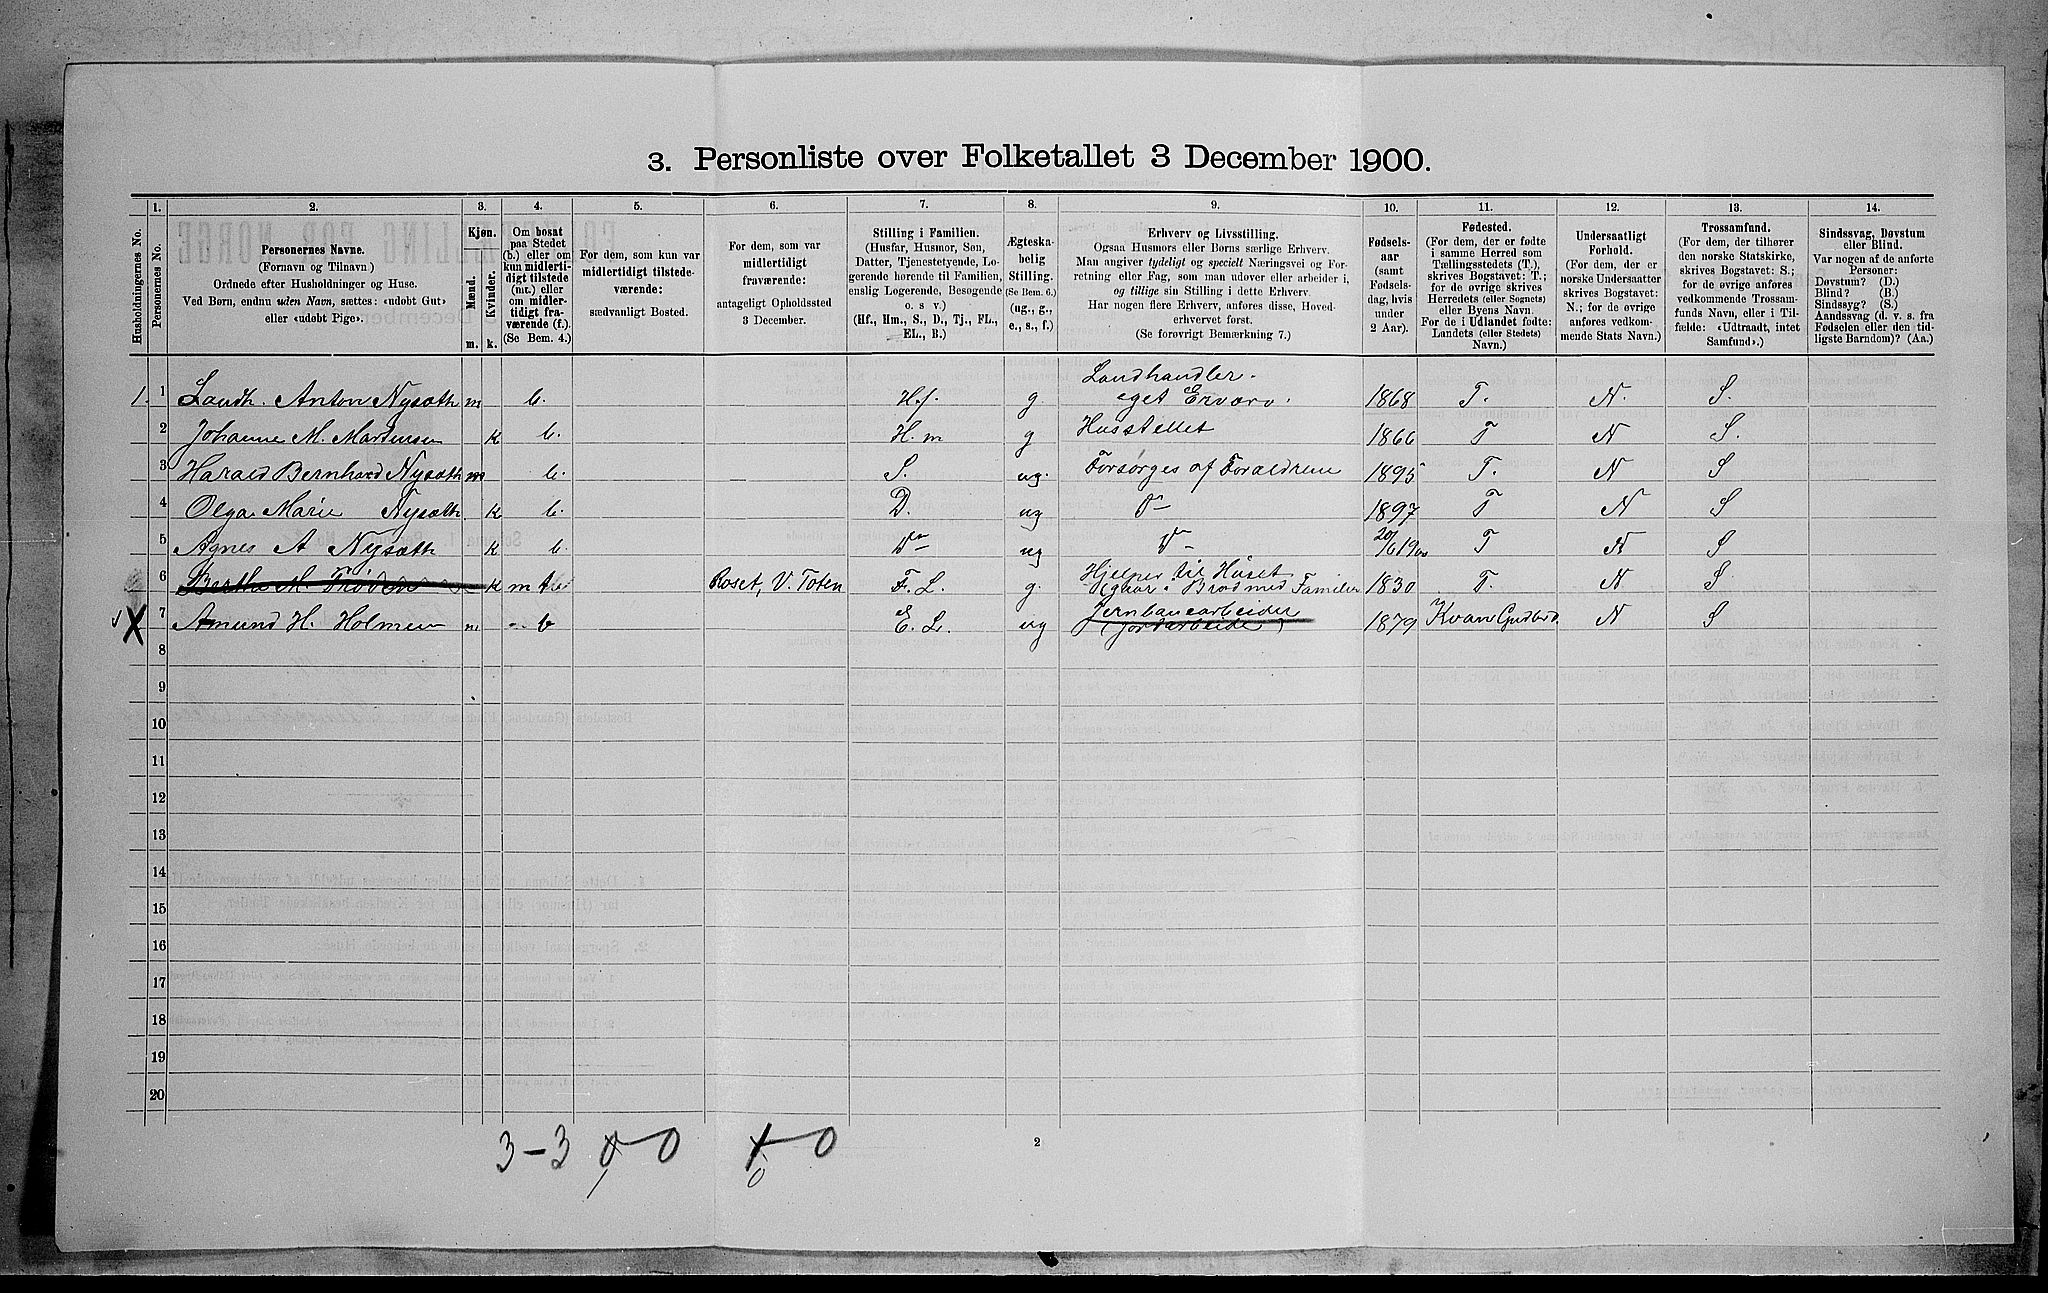 3. Personliste over Folketallet 3 December 1900.
1. 2. 3. 4. 5. 6. 7. 8. 9. 10. 11. 12. 13. 14.
Husholdningernes No.
Personernes No.
Personernes Navne.
(Fornavn og Tilnavn)
Ordnede efter Husholdninger og Huse.
Ved Børn, endnu uden Navn, sættes: «udøbt Gut»
eller «udøbt Pige».
Kjøn.
Mænd.
Kvinder.
m. k.
Om bosat
paa Stedet
(b.) eller om
kun midlerti-
digt tilstede
(mt.) eller
om midler-
tidigt fra-
værende (f.).
(Se Bem. 4.)
For dem, som kun var
midlertidigt tilstede-
værende:
sædvanligt Bosted.
For dem, som var
midlertidigt
fraværende:
antageligt Opholdssted
3 December.
Stilling i Familien.
(Husfar, Husmor, Søn,
Datter, Tjenestetyende, Lo-
gerende hørende til Familien,
enslig Logerende, Besøgende
o. s v.)
(Hf., Hm., S., D., Tj., FL.,
EL., B.)
Ægteska-
belig
Stilling.
(Se Bem. 6.)
(ug., g.,
e., s., f.)
Erhverv og Livsstilling.
Ogsaa Husmors eller Børns særlige Erhverv.
Man angiver tydeligt og specielt Næringsvei og For-
retning eller Fag, som man udøver eller arbeider i,
og tillige sin Stilling i dette Erhverv.
Har nogen flere Erhverv, anføres disse, Hoved-
erhvervet først.
(Se forøvrigt Bemærkning 7.)
Fødsels-
aar
(samt
Fødsels-
dag, hvis
under
2 Aar).
Fødested.
(For dem, der er fødte
i samme Herred som
Tællingsstedets (T.),
skrives Bogstavet: T.;
for de øvrige skrives
Herredets (eller Sognets)
eller Byens Navn.
For de i Udlandet fødte:
Landets (eller Stedets)
Navn.)
Undersaatligt
Forhold.
(For dem, der er
norske Undersaatter
skrives Bogstavet:
N.; for de øvrige
anføres vedkom-
mende Stats Navn.)
Trossamfund.
(For dem, der tilhører
den norske Statskirke,
skrives Bogstavet: S.;
for de øvrige anføres
vedkommende Trossam-
funds Navn, eller i Til-
fælde: «Udtraadt, intet
Samfund».)
Sindssvag, Døvstum
eller Blind.
Var nogen af de anførte
Personer:
Døvstum? (D.)
Blind? (B.)
Sindssyg? (S.)
Aandssvag (d. v. s. fra
Fødselen eller den tid-
ligste Barndom)? (Aa.)
1. 1 Landh. Anton Nysæth m b. Hf. g. Landhandler. eget Erværv. 1868 T. N. S.
2 Johanne M. Martinsen k b. H.m g Husstellet 1866 T N S.
3 Harald Bernhard Nysæth m b. S. ug. Forsørges af Forældrene 1895 T. N S
4 Olga Marie Nysæth k b. D. ug 1897 T N S
5 Agnes A Nysæth k b. ug 20/6 1900 T N S
6 Berthe M. k Roset, V. Toten F. L. g. Hjelper til Huset (gaar i Brød med Familien 1830 T. N S
7 Amund H. Holmen m b E. L. ug Jernbanearbeider (Jordarbeide) 1879 Kvam Gudbrd. N S
8
9
10
11
12
13
14
15
16
17
18
19
20
3-3 0 1-0
2